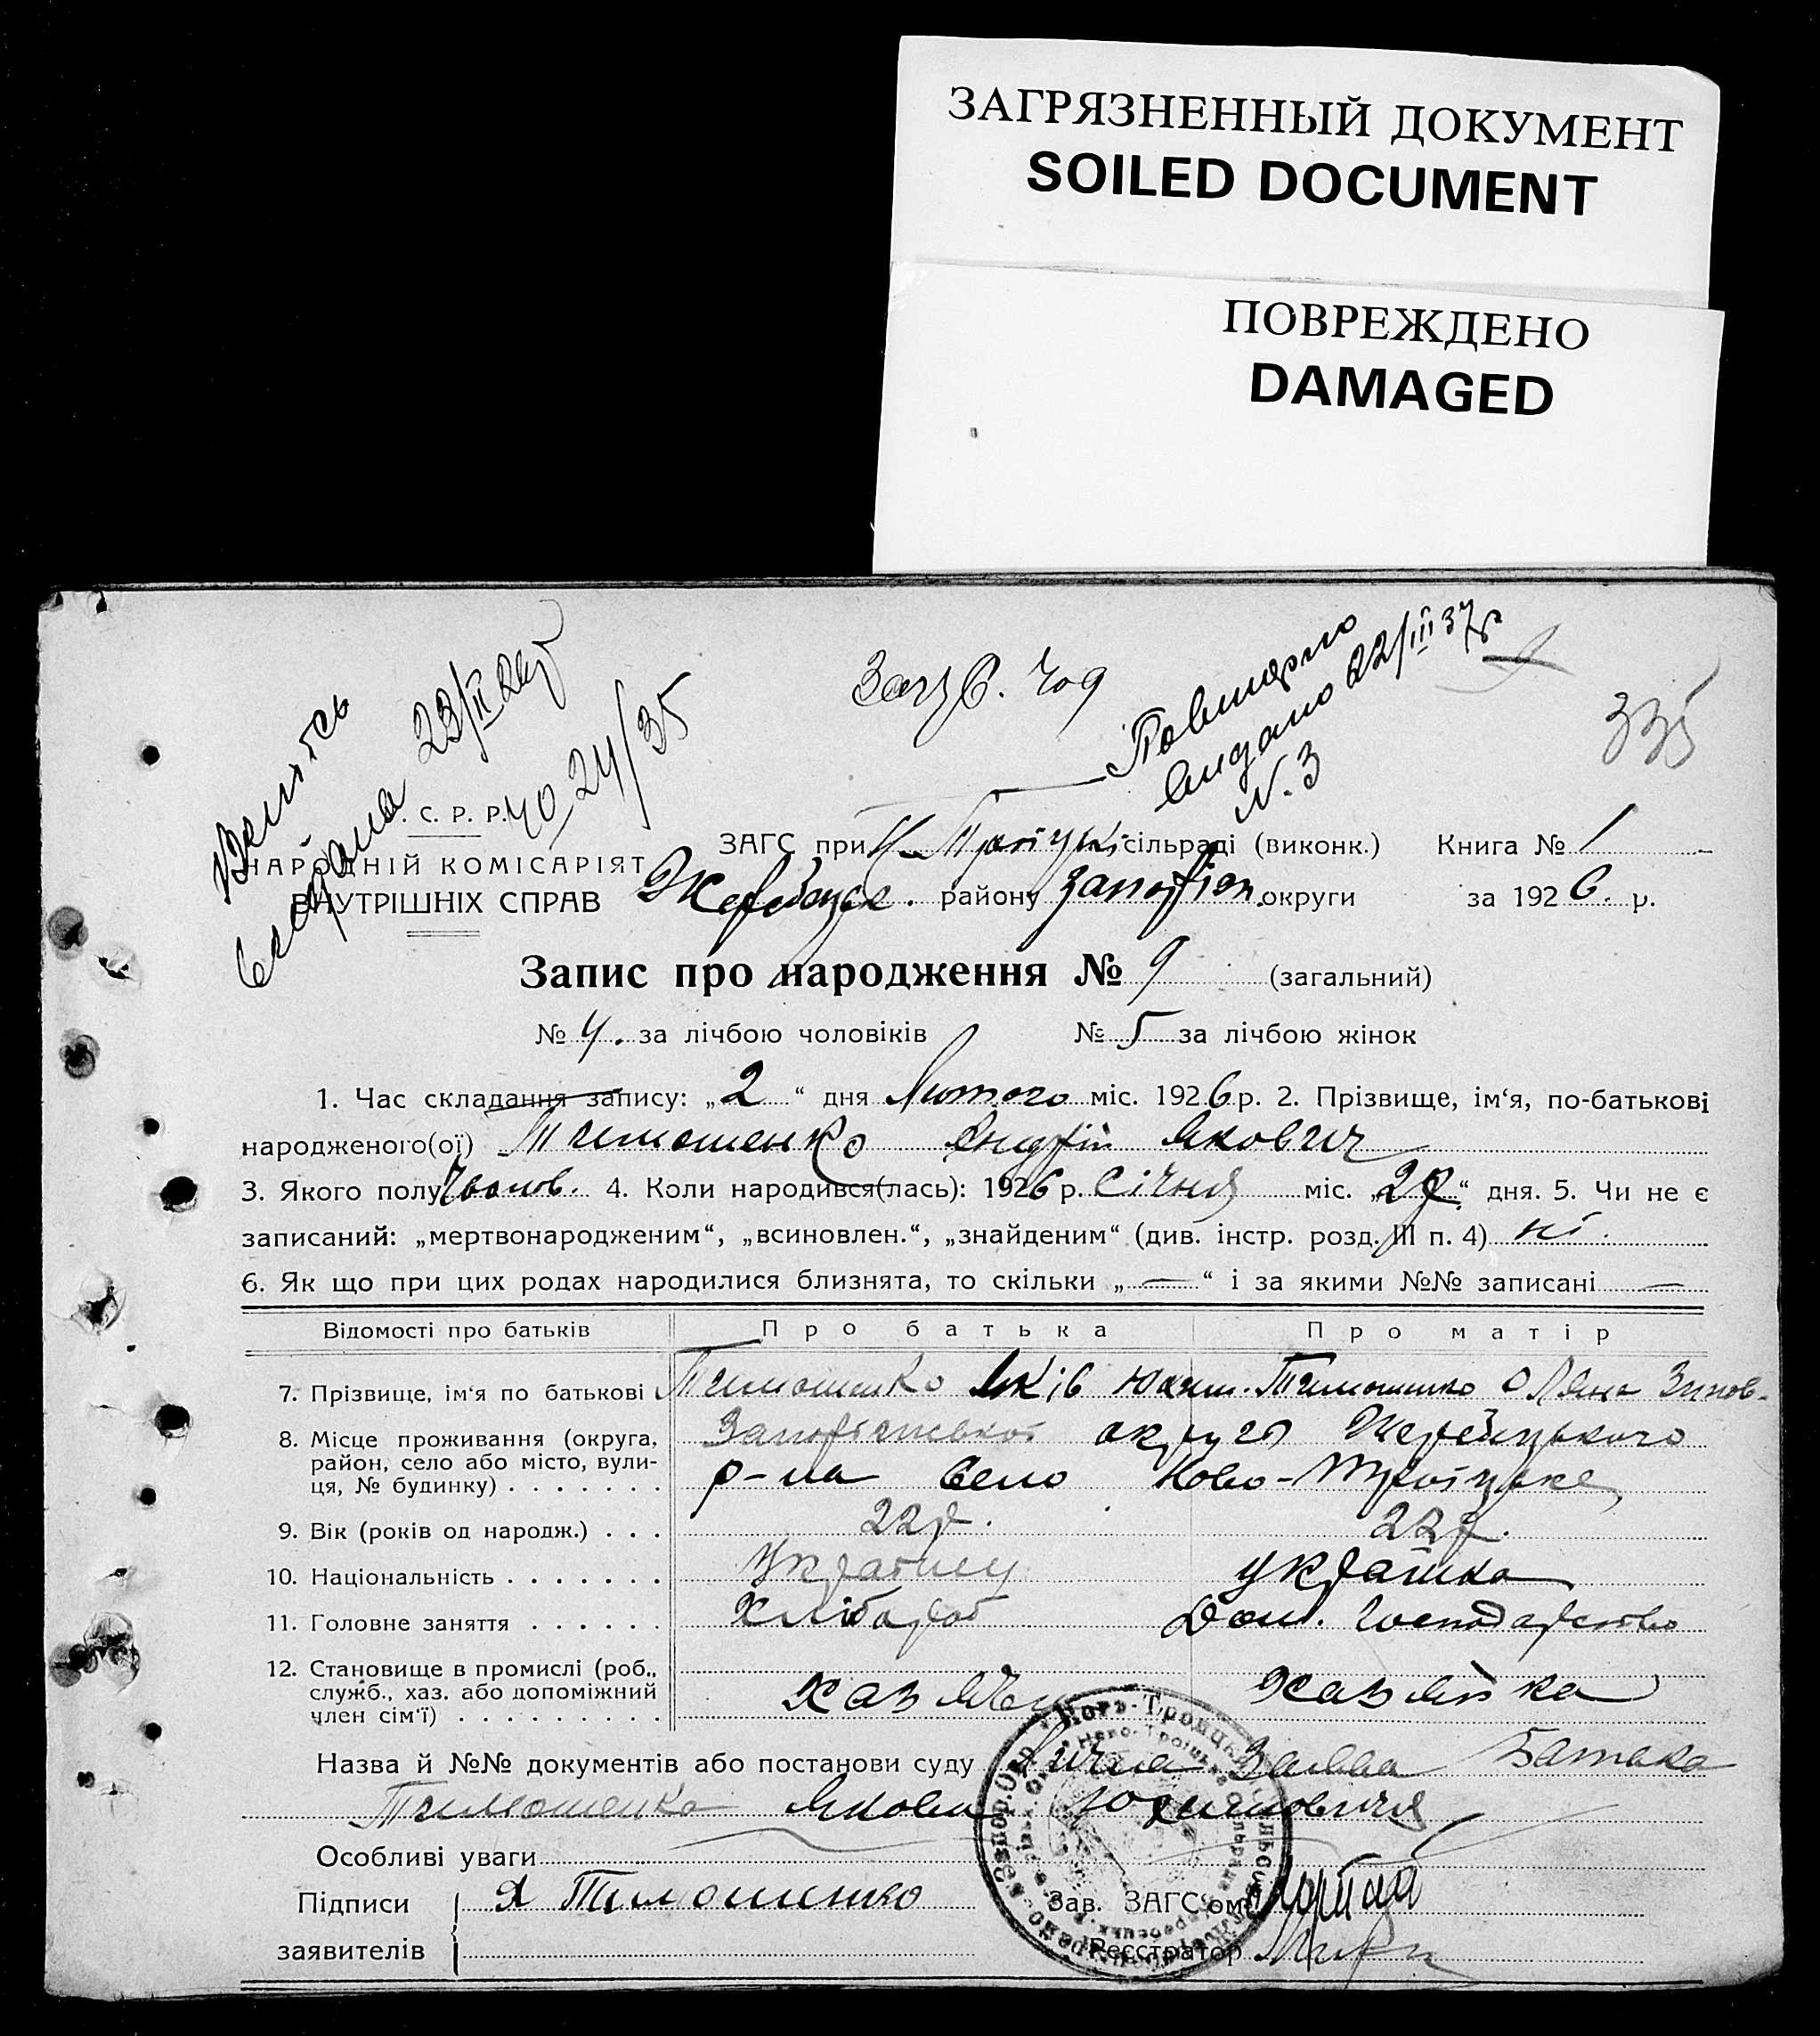 ЗАГРЯЗНЕННЫЙ ДОКУМЕНТ
SOILED DOCUMENT
ПОВРЕЖДЕНО
DAMAGED
335
22/III 37р
N. 3
40 24/35
С. Р. Р.
НАРОДНІЙ КОМІСАРІЯТ
ВНУТРІШНІХ СПРАВ
ЗАГС при Н-Троїцкі сільраді (виконк.) Книга № 1
Жеребецьк. району Запоріж. округи за 1926. р.
Запис про народження № 9 (загальний)
№ 4. за лічбою чоловіків № 5 за лічбою жінок
1. Час складання запису: „2“ дня Лютого міс. 1926 р. 2. Прізвище, ім‘я, по-батькові
народженого(ої) Тимошенко Андрій Якович
3. Якого полу Чолов. 4. Коли народився(лась): 1926 р. Січня міс. „ “ дня. 5. Чи не є
записаний: „мертвонародженим“, „всиновлен.“, „знайденим“ (див. інстр. розд. III п. 4) ні.
6. Як що при цих родах народилися близнята, то скільки „—“ і за якими №№ записані —
Відомості про батьків Про батька Про матір
7. Прізвище, ім‘я по батькові Тимошенко Яків Юхим. Тимошенко Оляна Зинов-
8. Місце проживання (округа, район, село або місто, вулиця, № будинку) Запоріжської округи Жеребецького
р-на село Ново-Троїцьке,
9. Вік (років од народж.) 22р. 22р.
10. Національність Українец Українка
11. Головне заняття Хлібороб Дом. Господарство
12. Становище в промислі (роб., служб., хаз. або допоміжний член сім‘ї) Хазяїн Хазяйка
Назва й №№ документів або постанови суду Лична Заява Батька
Тимошенка Якова Юхимовича
Особливі уваги
Підписи Я Тимошенко Зав. ЗАГС‘ом
заявителів Реєстратор